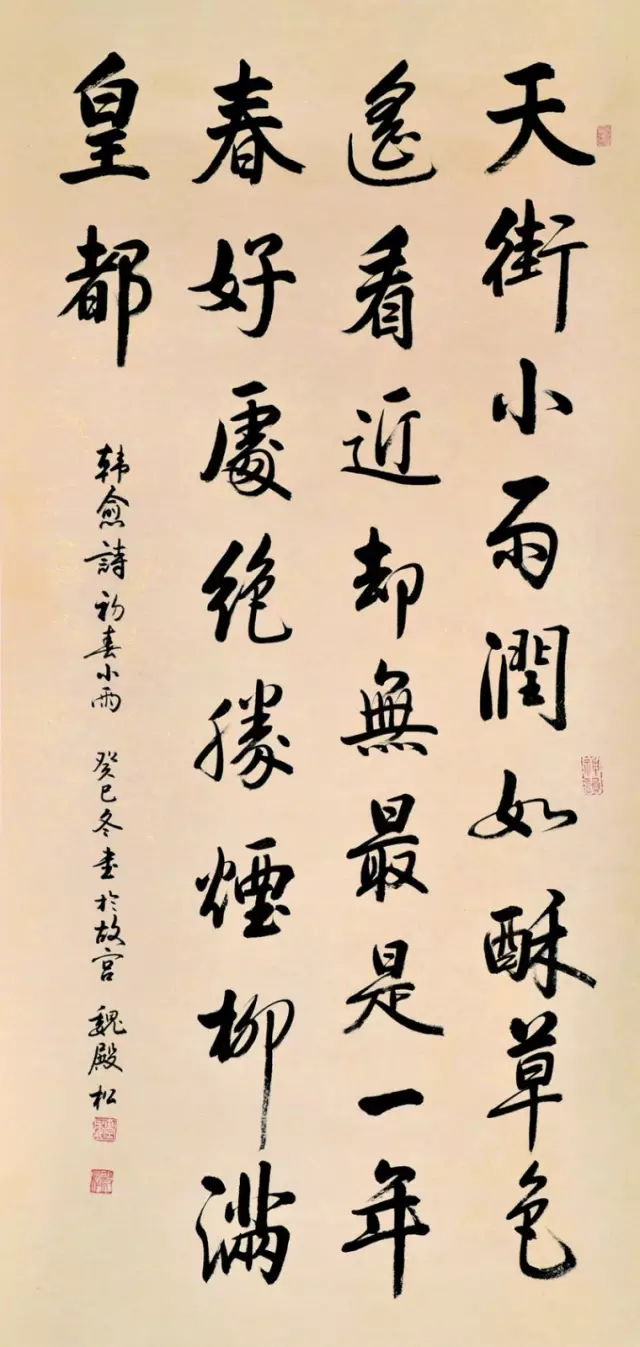 天街小雨潤如酥草色
遙看近却無最是一年
春好處絶勝煙柳滿
皇都
韩愈詩初春小雨 癸巳冬書於故宫 魏殿松